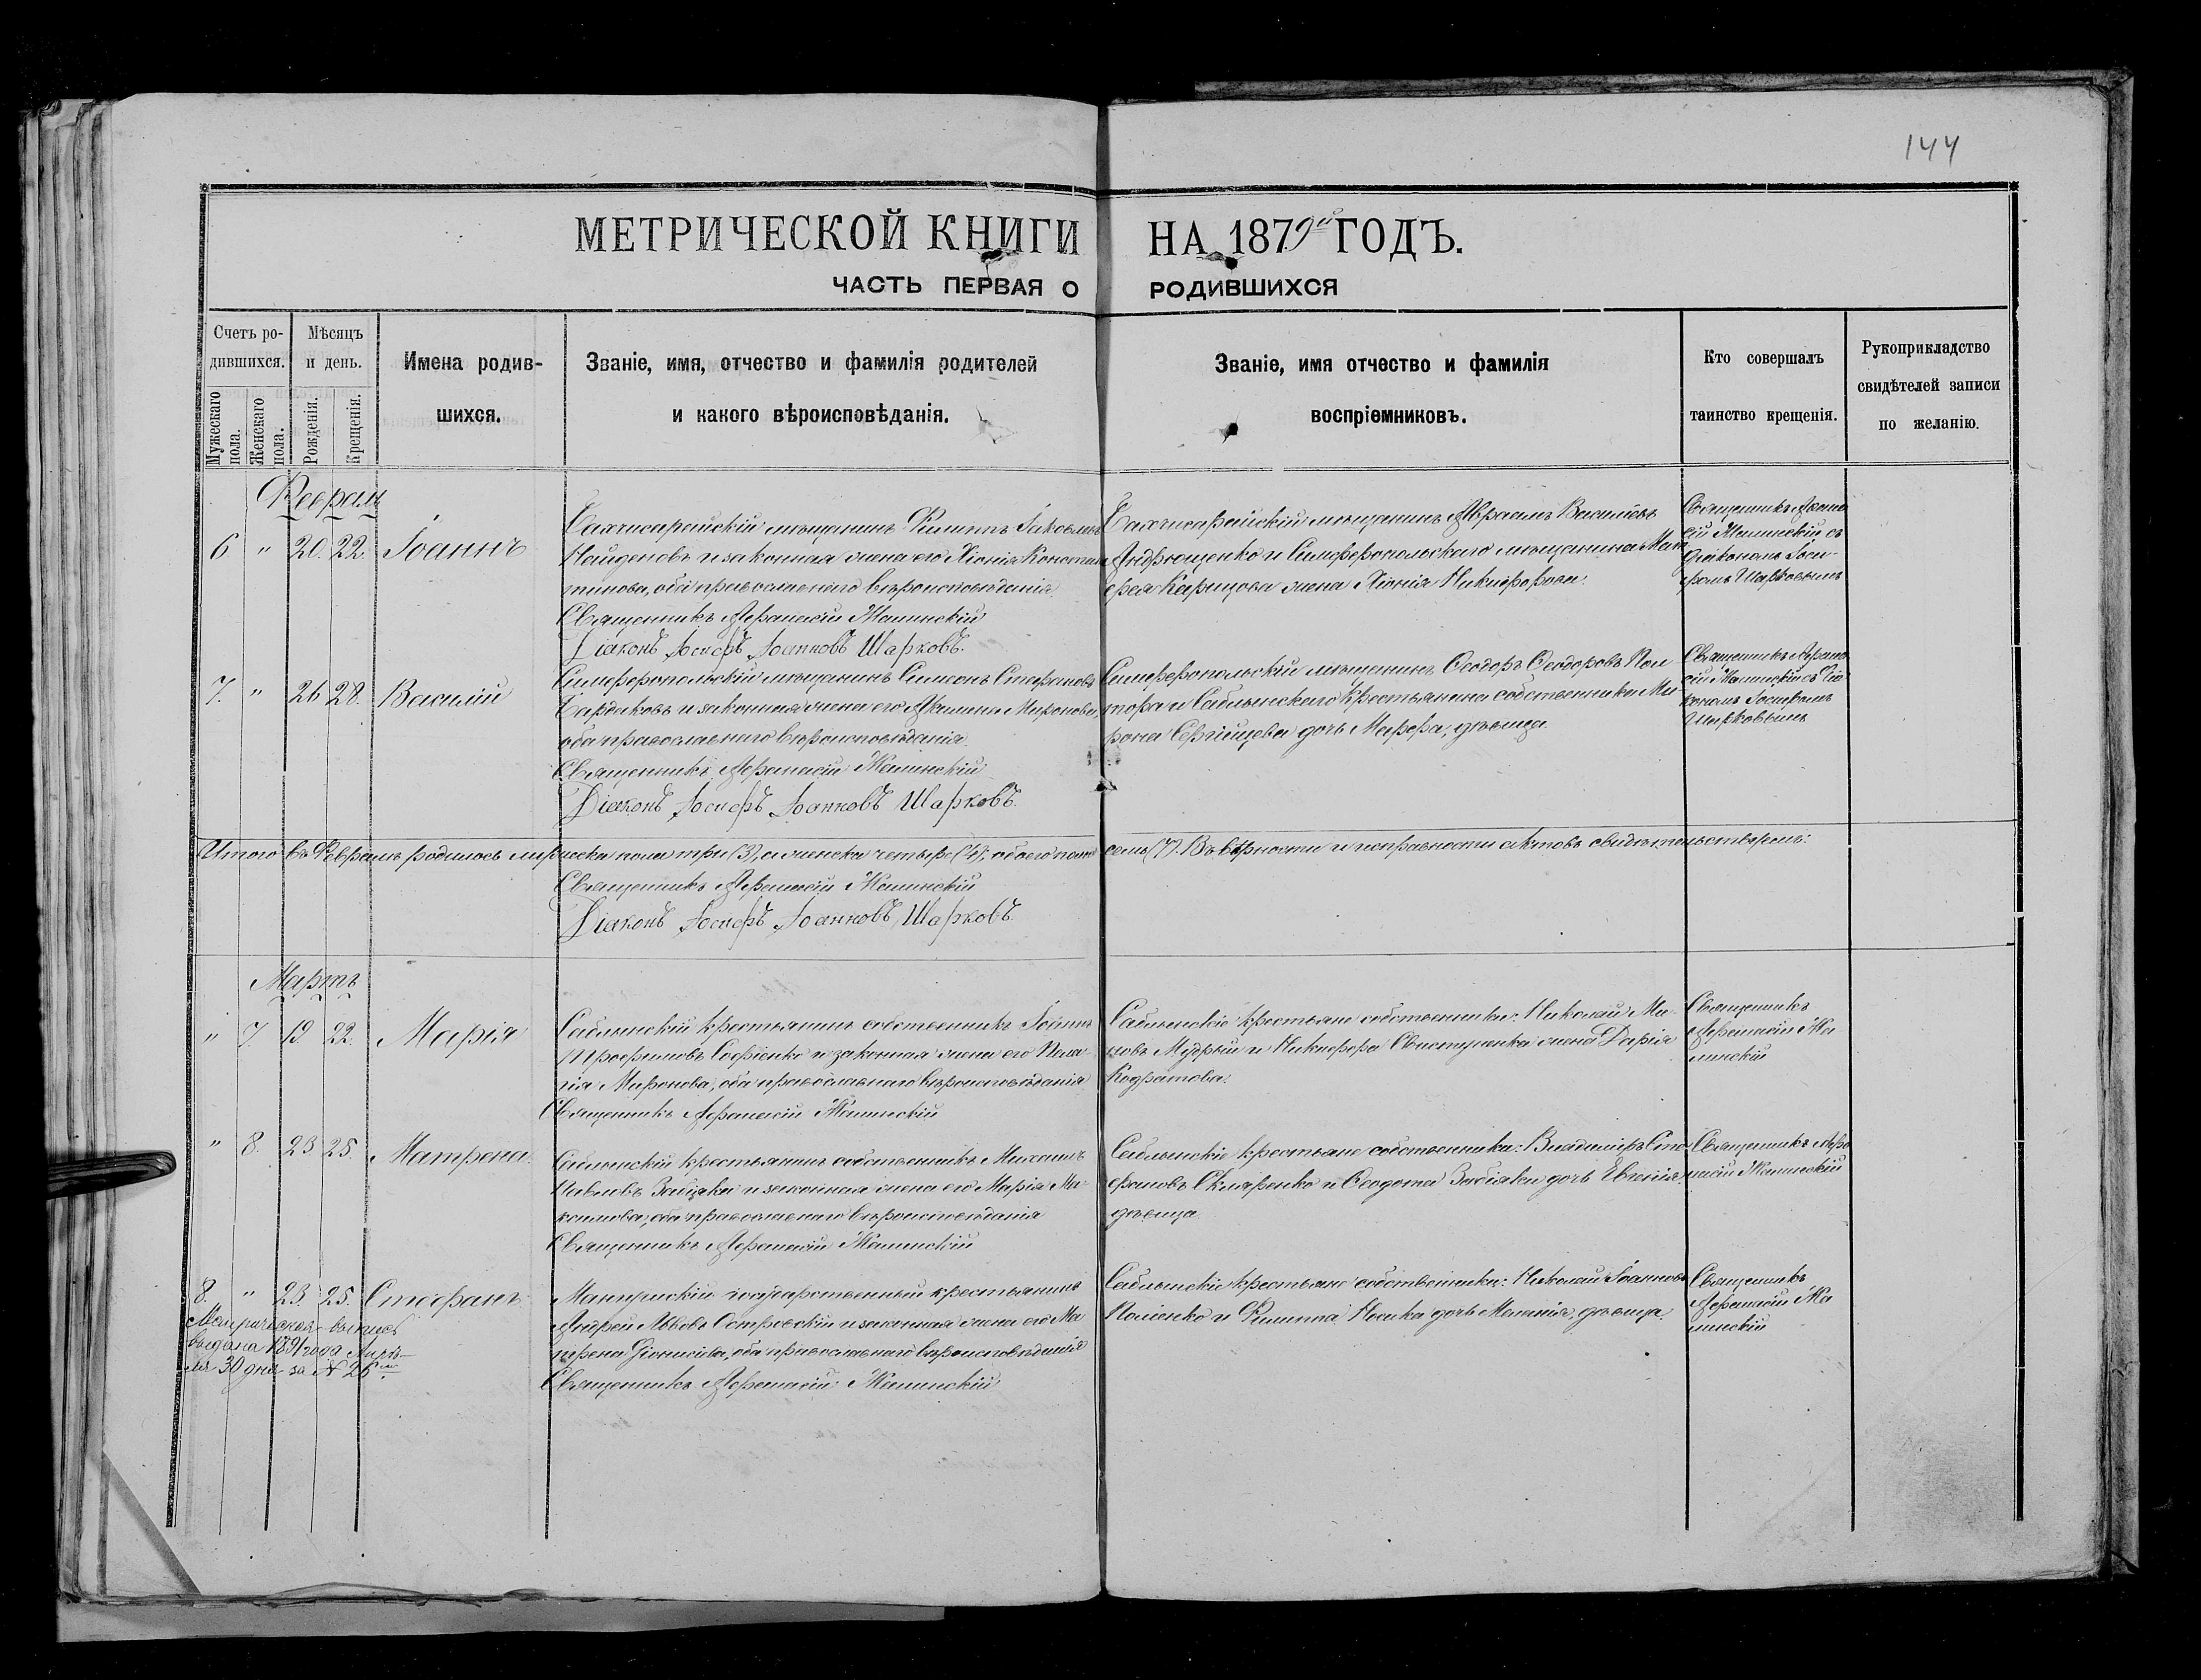 144
МЕТРИЧЕСКОЙ КНИГИ НА 1879й ГОДЪ.
ЧАСТЬ ПЕРВАЯ О РОДИВШИХСЯ
Счетъ ро-
дившихся.
Мужескаго пола.
Женскаго пола.
Мѣсяцъ
и день.
Рожденія.
Крещенія.
Имена родив-
шихся.
Званіе, имя, отчество и фамилія родителей
и какого вѣроисповѣданія.
Званіе, имя отчество и фамилія
воспріемниковъ.
Кто совершалъ
таинство крещенія.
Рукоприкладство
свидѣтелей записи
по желанію.
Февраль
6 " 20. 22. Іоаннъ
Бахчисарайскій мѣщанинъ Филиппъ Іаковлевъ
Найденовъ и законная жена его Хіонія Констан
тинова, оба православнаго вѣроисповѣданія.
Священникъ Афанасій Малинскій
Діаконъ Іосифъ Іоанновъ Шарковъ.
Бахчисарайскій мѣщанинъ Авраамъ Васильевъ
Андрющенко и Симферопольскаго мѣщанина
жена Хіонія Никифорова.
Священникъ Афана
сій Малинскій съ
Діакономъ Іоси-
фомъ Шарковымъ
7. " 26 28. Василій
Симферопольскій мѣщанинъ Симеонъ Стефановъ
Бардаковъ и законная жена его Акилина Миронова,
оба православнаго вѣроисповѣданія.
Священникъ Афанасій Малинскій
Діаконъ Іосифъ Іоанновъ Шарковъ.
Симферопольскій мѣщанинъ Ѳеодоръ Ѳеодоровъ Пол
тора и Саблынскаго крестьянина собственника Ми
рона дочь Марфа, дѣвица.
Священникъ Афана
сій Малинскій съ Діа
кономъ Іосифомъ
Шарковымъ
Итого въ Февралѣ родилось мужеска пола три (3), а женска четыре (4), обоего пола семь (7). Въ вѣрности и исправности актовъ свидѣтельствуемъ:
Священникъ Афанасій Малинскій
Діаконъ Іосифъ Іоанновъ Шарковъ.
Мартъ
" 7. 19. 22. Марія
Саблынскій крестьянинъ собственникъ Іоаннъ
Трофимовъ Софіенко и законная жена его Пела-
гія Миронова, оба православнаго вѣроисповѣданія
Священникъ Афанасій Малинскій
Саблынскіе крестьяне собственники: Николай
Мудрый и Никифора жена Дарія
Кодратова.
Священникъ
Афанасій Ма
линскій
" 8. 23 25. Матрена.
Саблынскій крестьянинъ собственникъ Михаилъ
Павловъ Забіяка и законная жена его Марія Ма-
ксимова, оба православнаго вѣроисповѣданія
Священникъ Афанасій Малинскій
Саблынскіе крестьяне собственники: Владиміръ Сте
фановъ Скляренко и Ѳеодота Забіяки дочь Евгенія,
дѣвица.
Священникъ Афа
насій Малинскій
8. " 23. 25. Стефанъ
Метрическая выпись
выдана 1891 года Апрѣ-
ля 30 дня за № 26
Мангушскій государственный крестьянинъ
Андрей Львовъ Островскій и законная жена его Ма
трена Діонисіева, оба православнаго вѣроисповѣданія
Священникъ Афанасій Малинскій
Саблынскіе крестьяне собственники: Николай Іоанновъ
и Филиппа Носика дочь Меланія, дѣвица.
Священникъ
Афанасій Ма
линскій